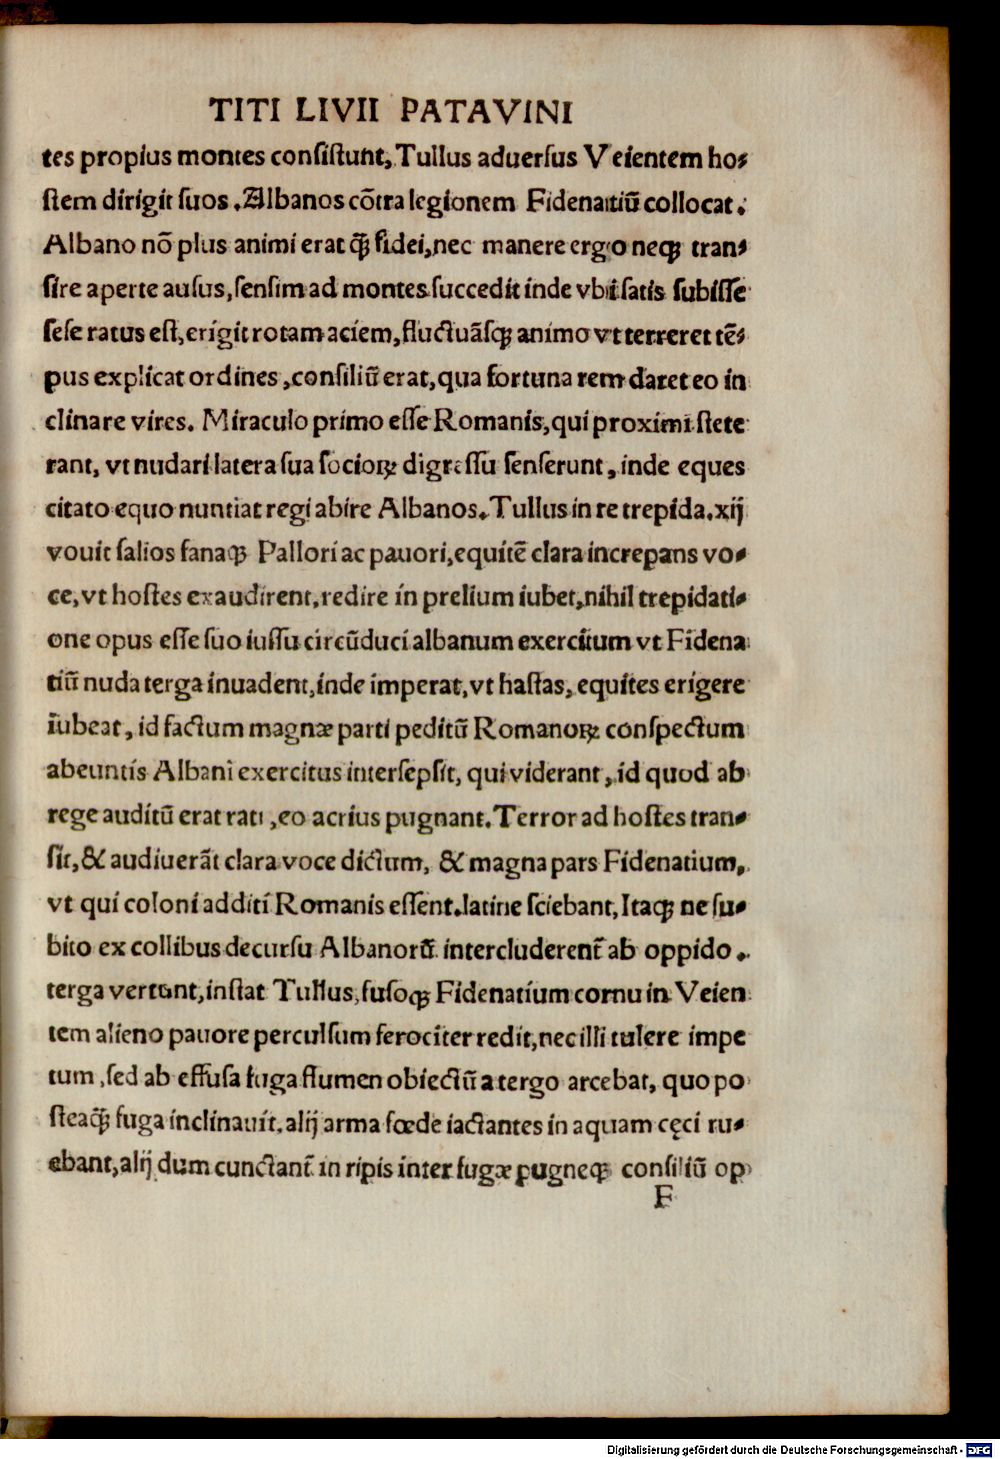 TITI LIVII PATAVINI
tes propius montes consistunt, Tullus aduersus Veientem ho-
stem dirigit suos. Albanos cōtra legionem Fidenatiū collocat.
Albano nō plus animi erat q̄ꝫ fidei, nec manere ergo neqꝫ tran-
sire aperte ausus, sensim ad montes succedit inde vbi satis subisse
sese ratus est, erigit totam aciem, fluctuāsqꝫ animo vt terreret tē-
pus explicat ordines, consiliū erat, qua fortuna rem daret eo in
clinare vires. Miraculo primo esse Romanis, qui proximi stete
rant, vt nudari latera sua socioꝝ digressu senserunt, inde eques
citato equo nuntiat regi abire Albanos. Tullus in re trepida. xij
vouit salios fanaqꝫ Pallori ac pauori, equitē clara increpans vo-
ce, vt hostes exaudirent, redire in prelium iubet, nihil trepidati-
one opus esse suo iussu circūduci albanum exercitum vt Fidena
tiū nuda terga inuadent, inde imperat, vt hastas, equites erigere
iubeat, id factum magnæ parti peditū Romanoꝝ conspectum
abeuntis Albani exercitus intersepsit, qui viderant, id quod ab
rege auditū erat rati, eo acrius pugnant. Terror ad hostes tran-
sit, & audiuerāt clara voce dictum, & magna pars Fidenatium,
vt qui coloni additi Romanis essent. latine sciebant, Itaqꝫ ne su-
bito ex collibus decursu Albanorū intercluderent̄ ab oppido.
terga vertunt, instat Tullus, fusoqꝫ Fidenatium cornu in Veien
tem alieno pauore perculsum ferociter redit, nec illi tulere impe
tum, sed ab effusa fuga flumen obiectū a tergo arcebat, quo po
steaq̄ꝫ fuga inclinauit, alij arma fœde iactantes in aquam cęci ru-
ebant, alij dum cunctant̄ in ripis inter fugæ pugneqꝫ consiliū op
F
Digitalisierung gefördert durch die Deutsche Forschungsgemeinschaft - DFG